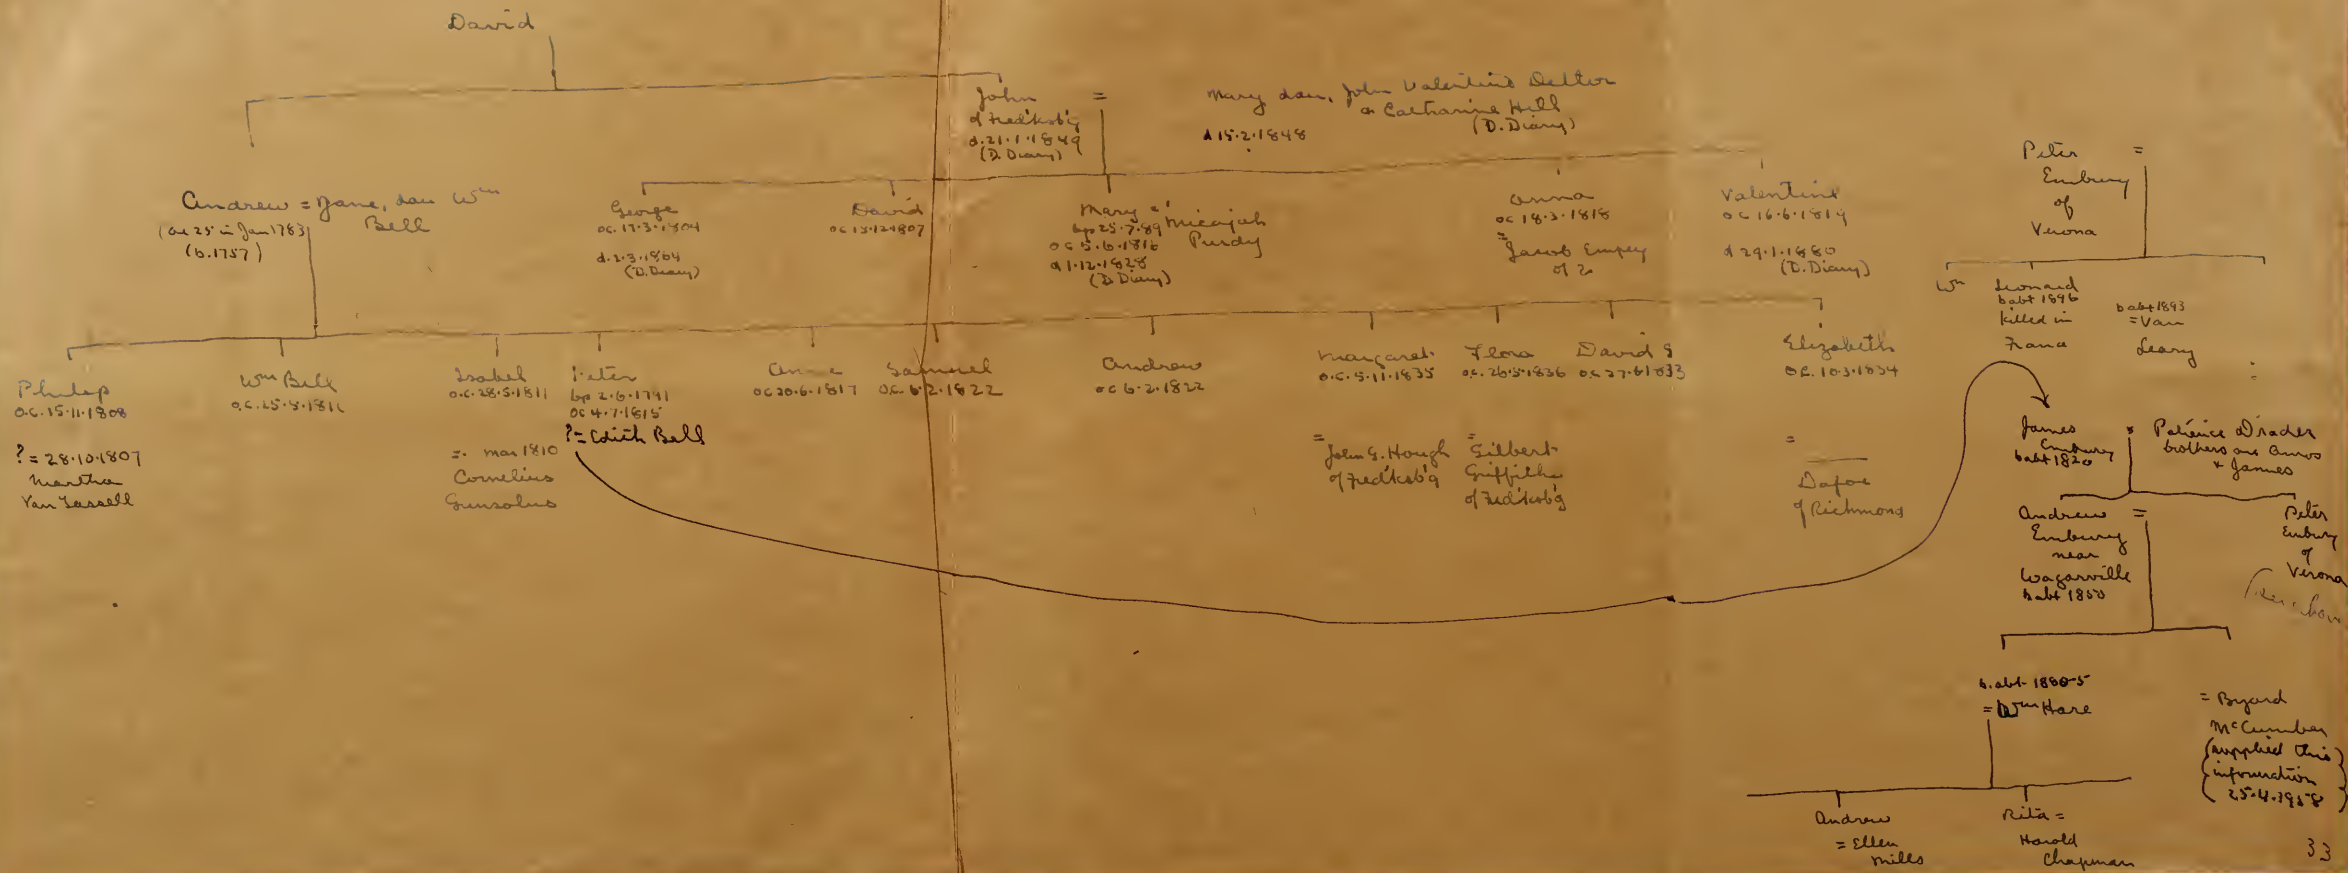 David
John
of Fred'ksb'g
d. 21.1.1849
(D. Diary)
=
Mary dau. John Valentine Detlor
& Catharine Hill
(D. Diary)
d 15.2.1848
Andrew = Jane, dau Wm
Bell
(ae 25 in Jan 1783)
(b. 1757)
George
oc. 17.3.1804
d. 2.3.1864
(D. Diary)
David
oc 15.12.1807
Mary = Micajah
Purdy
bp 25.7.89
oc 5.6.1816
d 1.12.1828
(D. Diary)
Anna
oc 18.3.1818
=
Jacob Empey
of
Valentine
oc 16.6.1819
d 29.1.1880
(D. Diary)
Peter =
Embury
of
Verona
Wm
Leonard
b abt 1896
killed in
France
b abt 1893
= Van
Leary
Philip
o.c. 15.11.1808
? = 28.10.1807
Martha
Van Tassell
Wm Bell
o.c. 25.5.1811
Isabel
o.c. 28.5.1811
=. mar 1810
Cornelius
Gunsolus
Peter
bp 2.6.1791
oc 4.7.1815
? = Edith Bell
Anne
oc 20.6.1817
Samuel
o.c. 6.2.1822
Andrew
oc 6.2.1822
Margaret
o.c. 5.11.1835
=
John G. Hough
of Fred'ksb'g
Flora
o.c. 26.5.1836
=
Gilbert
Griffiths
of Fred'ksb'g
David S
o.c. 27.6.1833
Elizabeth
o.c. 10.3.1834
=
Dafoe
of Richmond
James =
Embury
b abt 1820
Patience Drader
brothers are Amos
& James
Andrew =
Embury
near
Wagarville
b abt 1850
Peter
Embury
of
Verona
b. abt 1880-5
= Wm Hare
= Byard
McCumber
(supplied this
information
25.4.1958)
Andrew
= Ellen
Mills
Rita =
Harold
Chapman
33